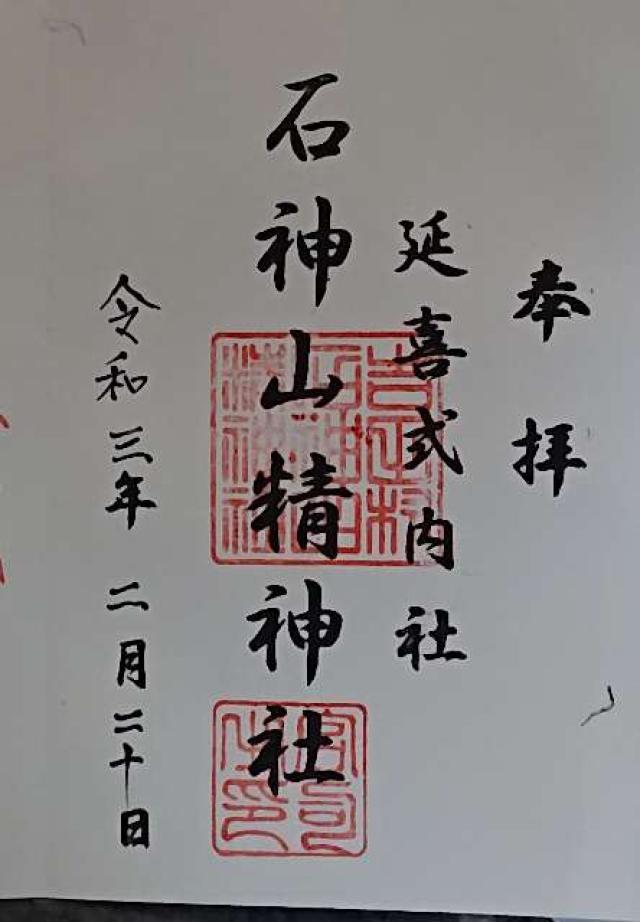 奉拝
延喜式内社
石神山精神社
令和三年 二月二十日